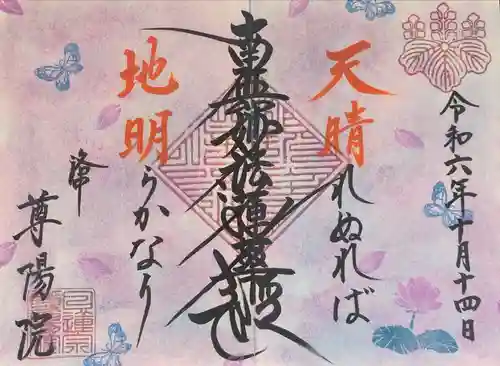 令和六年十月十四日
天晴れぬれば
南無妙法蓮華経
地明らかなり
尊陽院